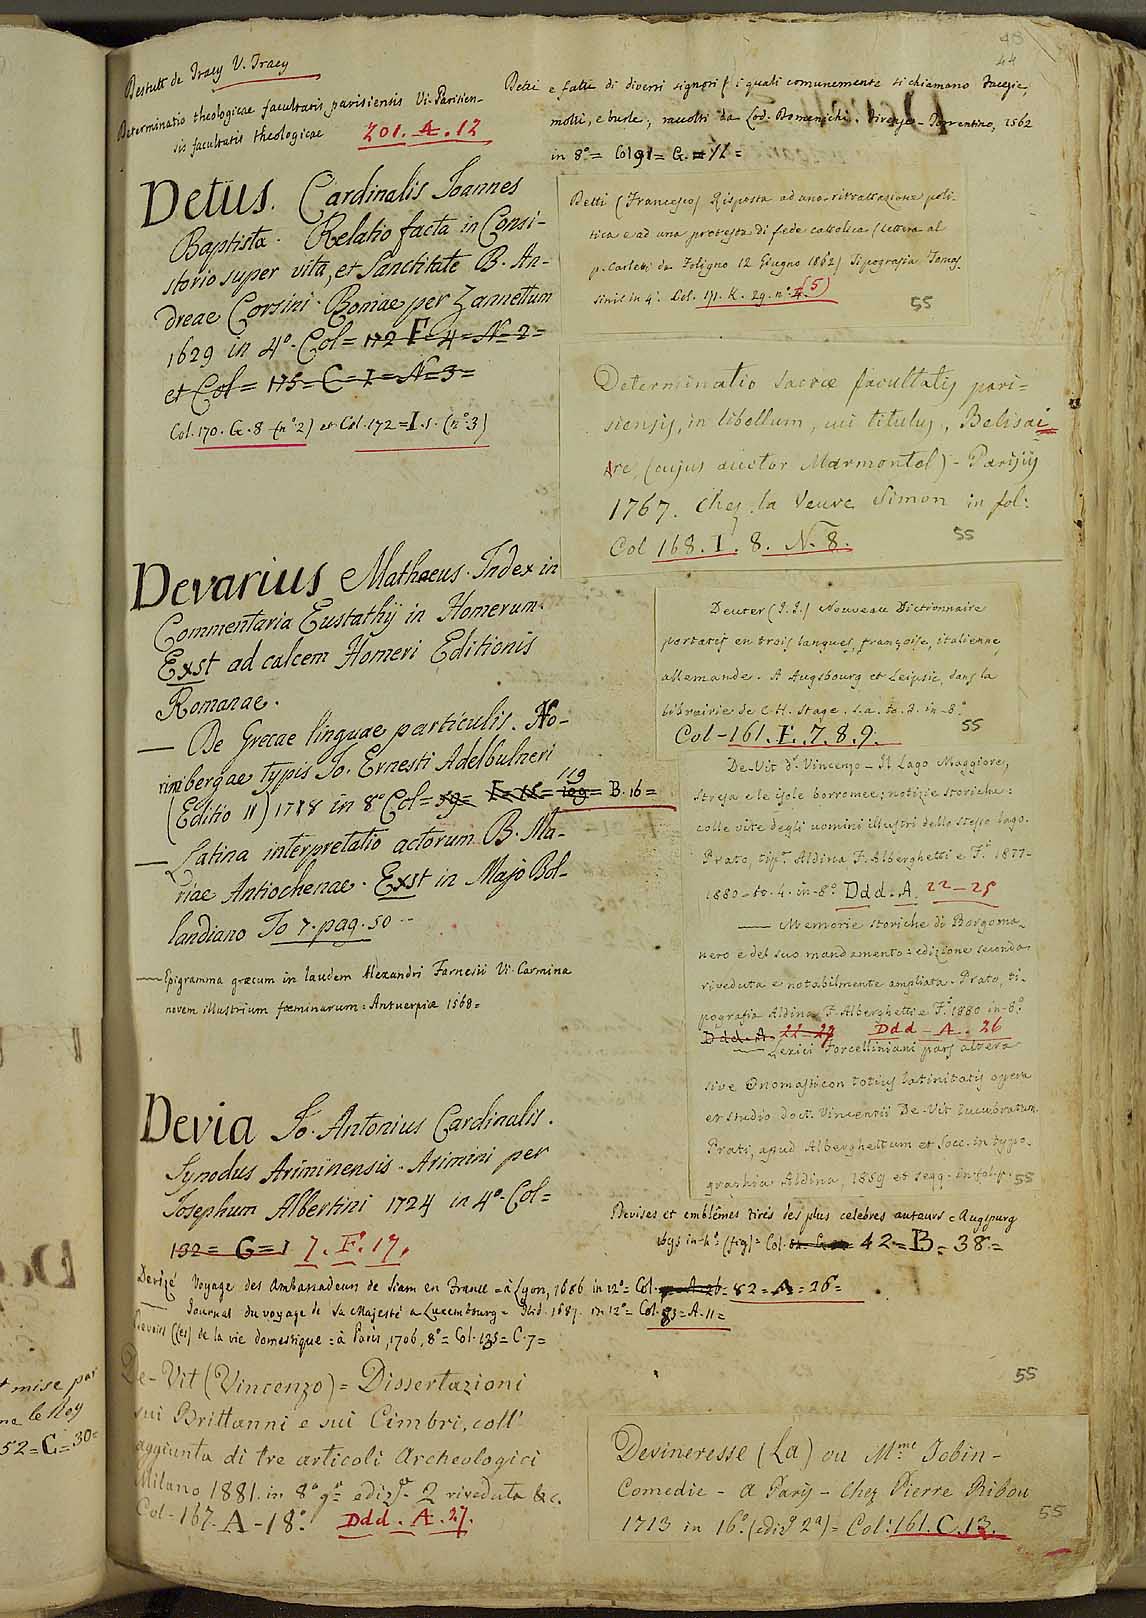 Destutt de Tracy V. Tracy
Determinatio theologicae facultatis parisiensis Vi. Parisien-
sis facultatis theologicae 201. A. 12
Detius. Cardinalis Joannes
Baptista. Relatio facta in Consi-
storio super vita, et Sanctitate B. An-
dreae Corsini. Romae per Zanettum
1629 in 4º. Col= 172 F=4=N=2=
et Col= 175=C=I=N=3=
Col. 170. G. 8 (nº2) et Col. 172=I.1. (nº3)
Devarius Mathaeus. Index in
Commentaria Eustathij in Homerum.
Exst ad calcem Homeri Editionis
Romanae.
— De Grecae linguae particulis. No-
rimbergae typis Jo. Ernesti Adelbulneri
(Editio II) 1718 in 8º Col= 119 B. 16=
— Latina interpretatio actorum B. Ma-
riae Antiochenae. Exst in Majo Bol-
landiano To 7. pag. 50 --
— Epigramma græcum in laudem Alexandri Farnesii Vi. Carmina
novem illustrium fœminarum: Antuerpiæ 1568=
Devia Jo. Antonius Cardinalis.
Synodus Ariminensis. Arimini per
Josephum Albertini 1724 in 4º. Col=
132= G=I 7. F. 17.
Devizé Voyage des Ambassadeurs de Siam en France = à Lyon, 1686 in 12º= Col. 82=A=26=
— Journal du voyage de Sa Majesté a Luxembourg= Ibid. 1687. in 12º= Col. 83=A.11=
Devoirs (les) de la vie domestique = à Paris, 1706, 8º= Col. 135= C. 7=
De-Vit (Vincenzo) = Dissertazioni
sui Brittanni e sui Cimbri, coll'
aggiunta di tre articoli Archeologici
Milano 1881. in 8º gr. edizº 2 riveduta &c.
Col- 167. A-18º. Ddd. A. 27.
48
44
Detti e fatti di diversi signori (i quali comunemente si chiamano Facezie,
motti, e burle; raccolti da Lod. Domenichi. Firenze- Torrentino, 1562
in 8º= Col 91= G.= 11=
Betti (Francesco) Risposta ad una ritrattazione poli-
tica e ad una protesta di fede cattolica (lettera al
p. Carletti da Foligno 12 Giugno 1862) Tipografia Tomas-
sini in 4º. Col. 171. K. 29. nº 4. (5)
55
Determinatio sacræ facultatis pari-
siensis, in libellum, cui titulus, Belisai
re, (cujus auctor Marmontel) - Parisiis
1767. chez la Veuve Simon in fol:
Col 168. I. 8. N. 8.
55
Deuter (J. J.) Nouveau Dictionnaire
portatif en trois langues, françoise, italienne,
allemande. A Augsbourg et Leipsic, dans la
librairie de C. H. Stage. s.a. to. 3. in-8º
Col-161. F. 7. 8. 9.
55
De-Vit Dr. Vincenzo- Il Lago Maggiore,
Stresa e le isole borromee; notizie storiche:
colle vite degli uomini illustri dello stesso lago.
Prato, tip. Aldina F. Alberghetti e F.i 1877-
1880-to. 4. in-8º. Ddd. A. 22-25
— Memorie storiche di Borgoma-
nero e del suo mandamento: edizione seconda
riveduta e notabilmente ampliata. Prato, ti-
pografia Aldina F. Alberghetti e F.i 1880 in-8º
Ddd. A. 22-27 Ddd-A. 26
— Lexici Forcelliniani pars altera
sive Onomasticon totius latinitatis opera
et studio doct. Vincentii De-Vit lucubratum
Prati, apud Alberghettum et Socc. in typo-
graphia Aldina, 1859 et segg. in fol. p.
55
Devises et emblêmes tirés des plus celebres auteurs = Augspurg
in-4º. (fig)= Col. 42=B=38=
55
Devineresse (La) ou Mme Jobin-
Comedie- a Paris- Chez Pierre Ribou
1713 in 16º. (ediz.e 2a)= Col: 161. C. 13.
55
t mise par
le Roy
52=C=30=